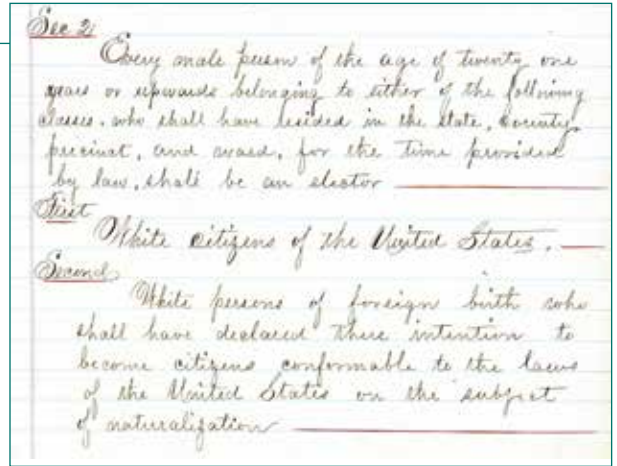 Sec 2
Every male person of the age of twenty one
years or upwards belonging to either of the following
classes, who shall have resided in the state, County,
precinct, and ward, for the time provided
by law, shall be an elector
First
White citizens of the United States.
Second
White persons of foreign birth who
shall have declared there intention to
become citizens conformable to the laws
of the United States on the subject
of naturalization